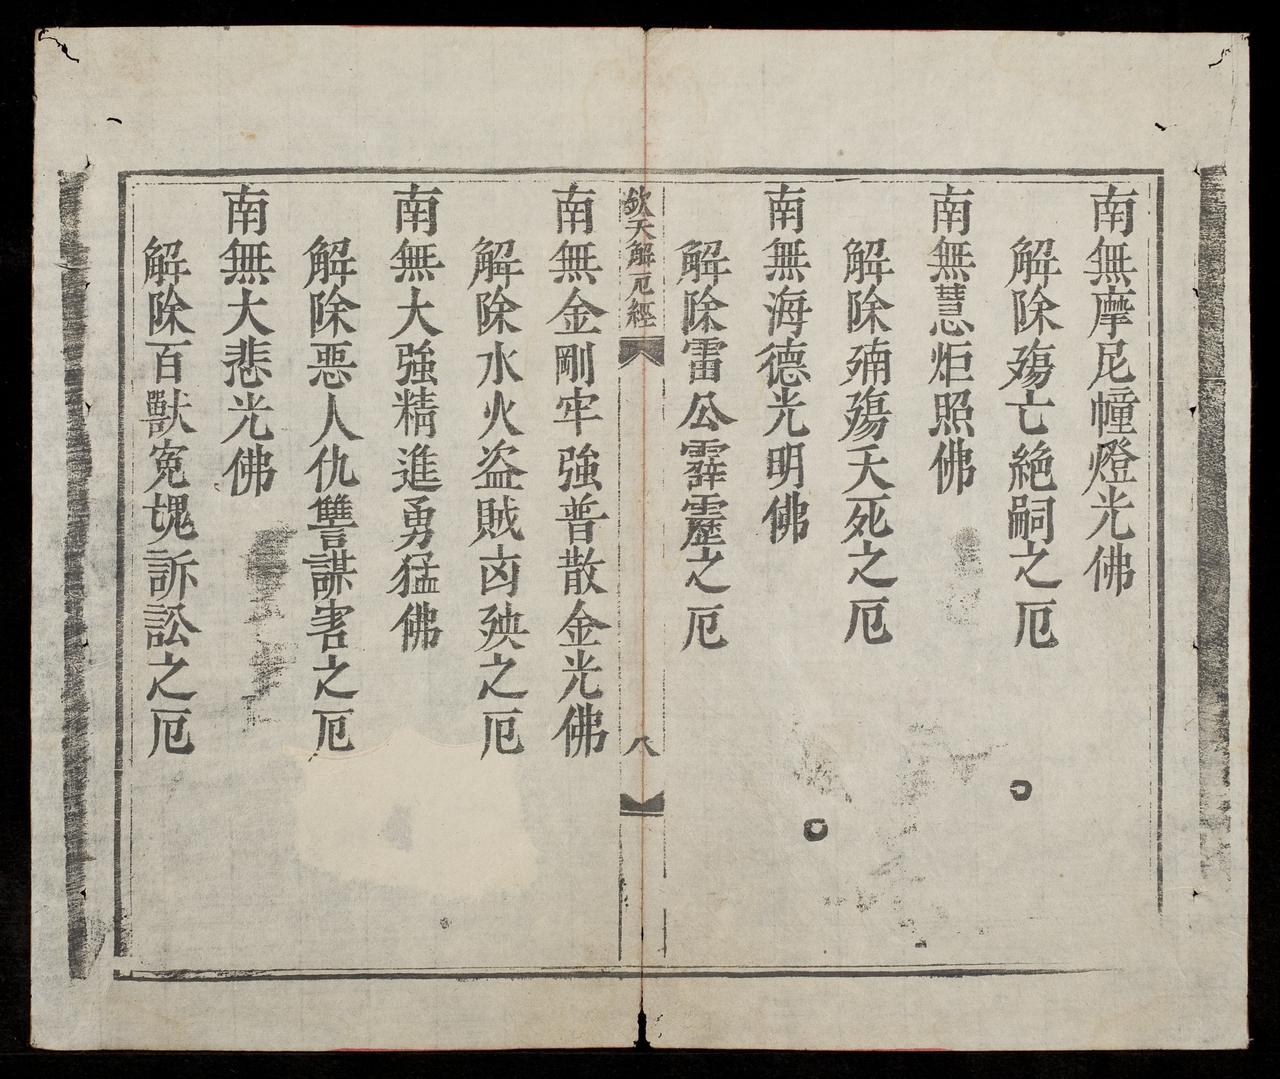 南無摩尼幢燈光佛
解除殤亡絶嗣之厄
南無慧炬照佛
解除殰殤夭死之厄
南無海德光明佛
解除雷公霹靂之厄
欽天解厄經
八
南無金剛牢強普散金光佛
解除水火盗賊凶殃之厄
南無大強精進勇猛佛
解除惡人仇讐謀害之厄
南無大悲光佛
解除百獸寃塊訴訟之厄